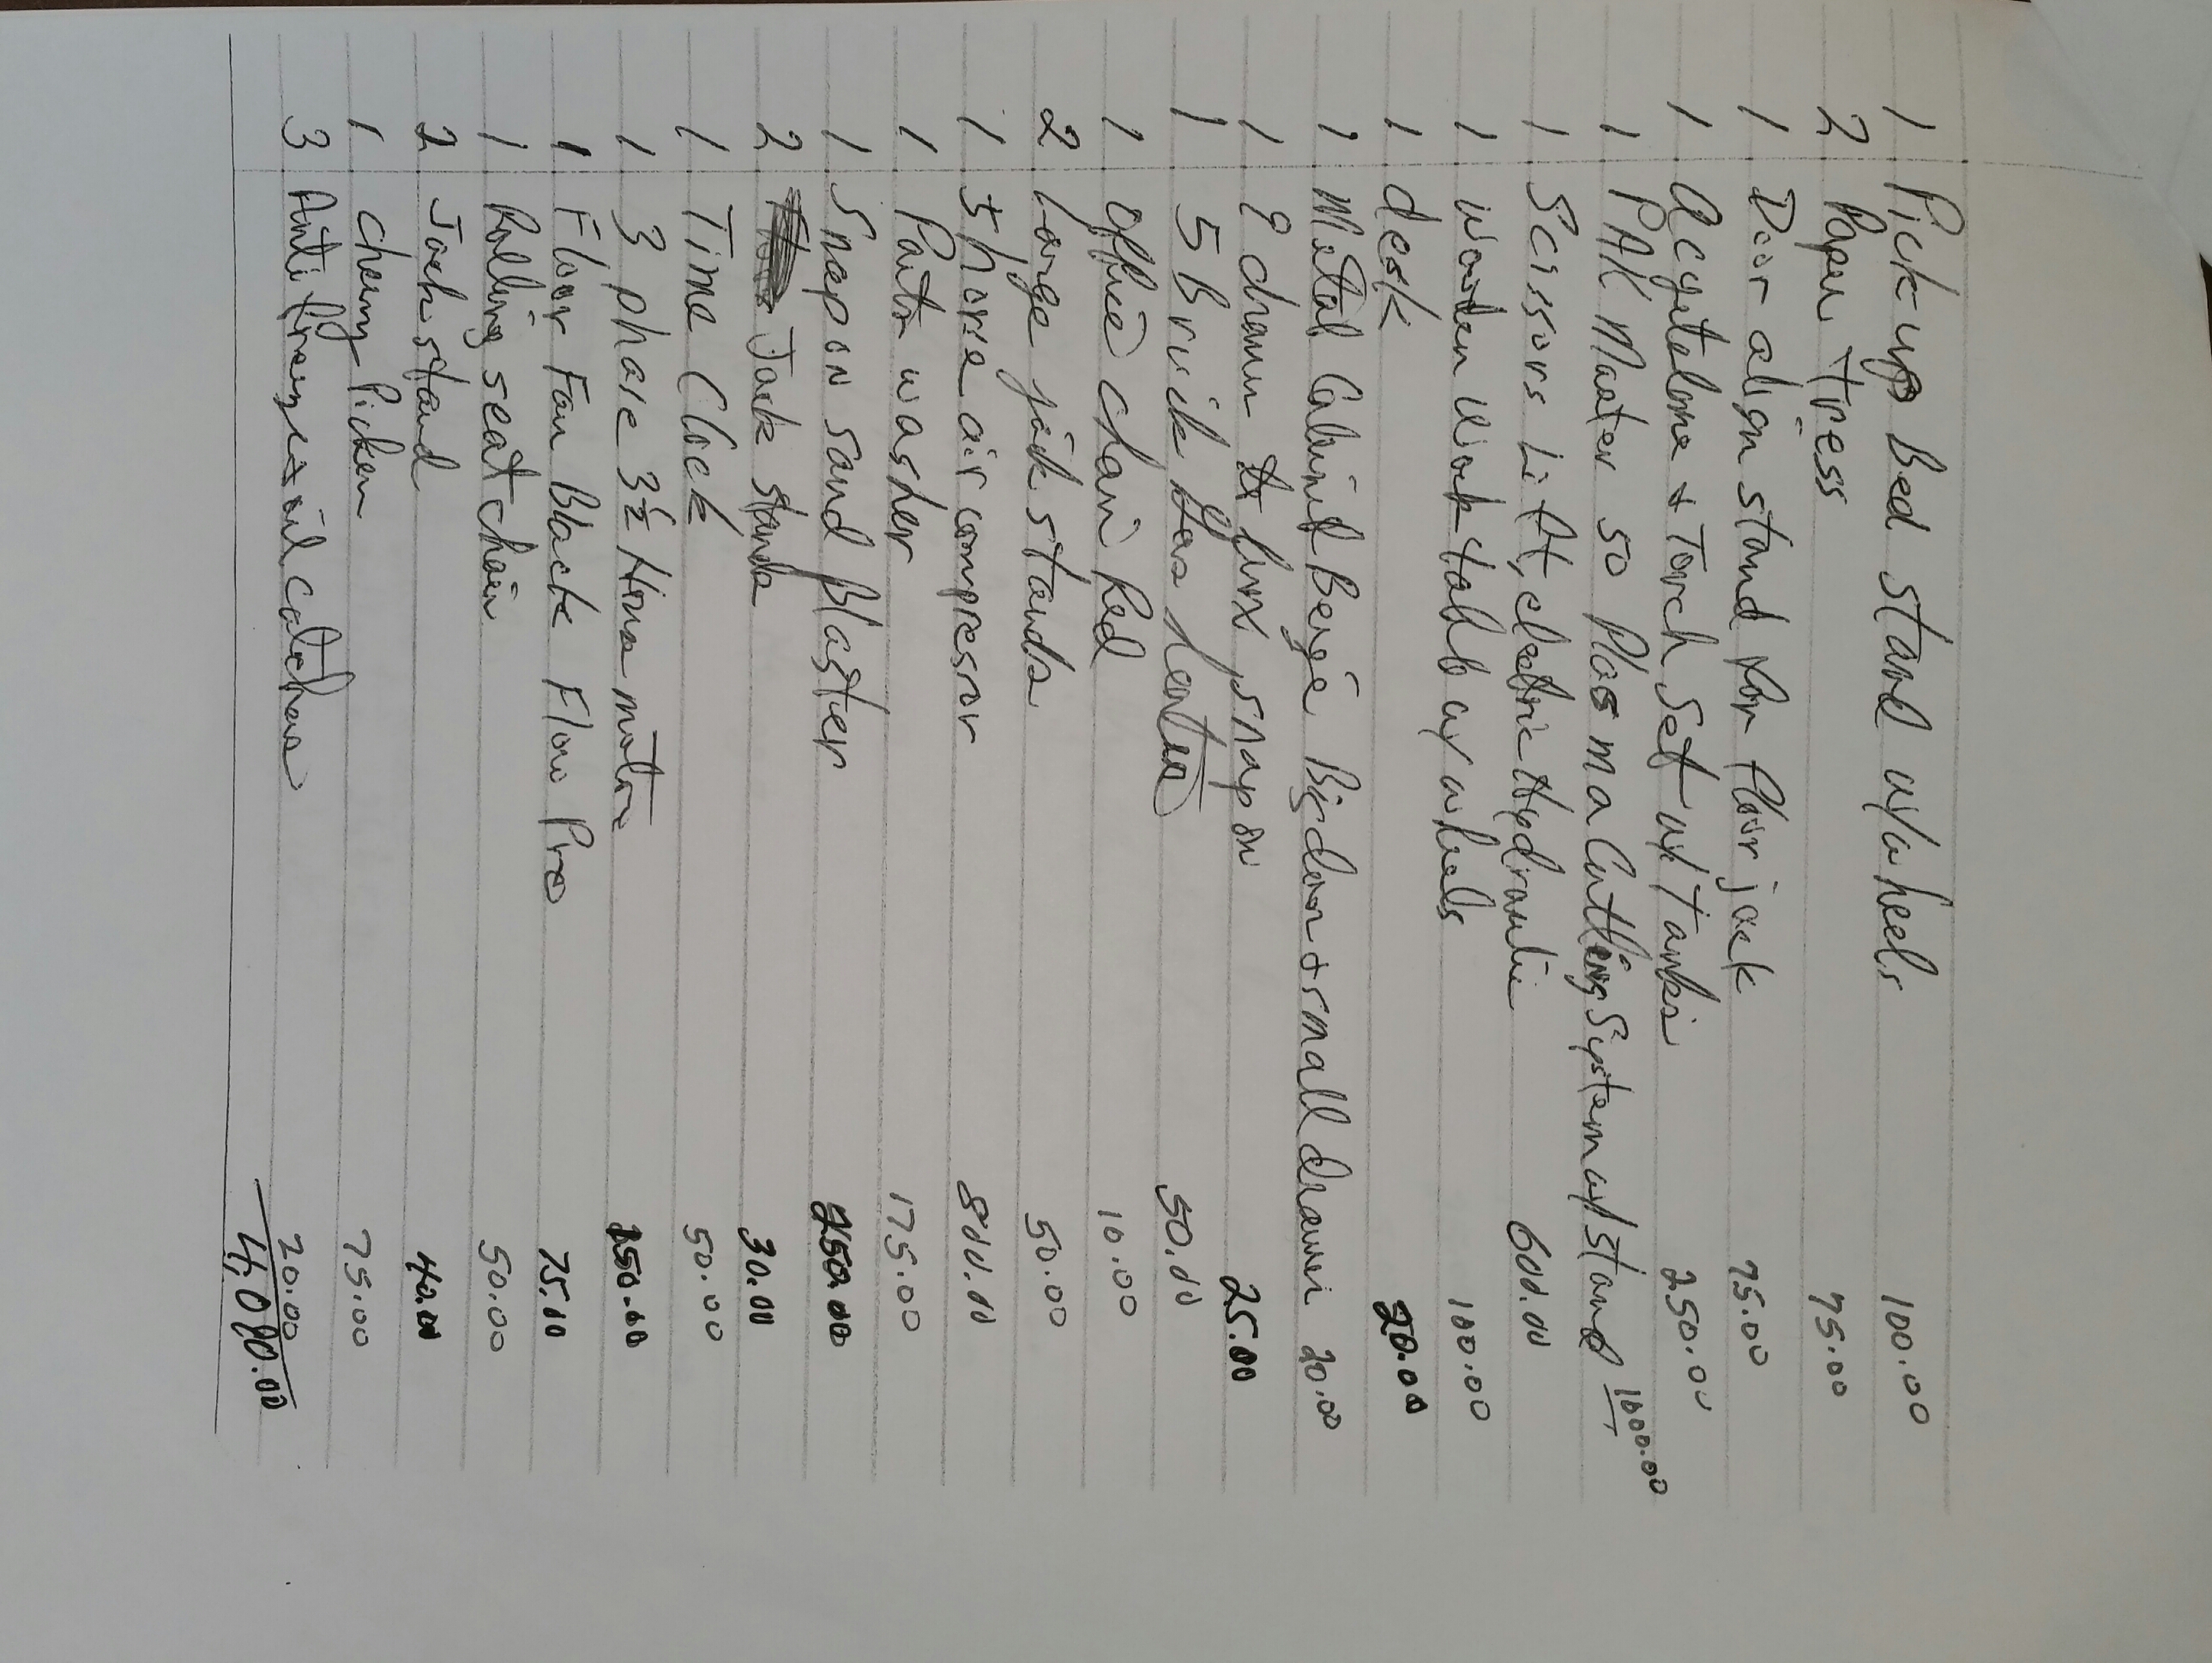 1 Pick-up Bed stand w/wheels 100.00
2 Paper tress 75.00
1 Door align stand for floor jack 75.00
1 Acytelone + Torch Set w/Tanks 250.00
1 PAK Master 50 Plasma Cutting System w/stand 1000.00
1 Scissors Lift, electric Hydraulic 600.00
1 wooden work table w/ wheels 100.00
1 desk 20.00
1 Metal Cabinet Beige Big door + small drawer 20.00
1 9 drawer snap on 25.00
1 5 Brick Gas heater 50.00
1 office chair Red 10.00
2 large jack stands 50.00
1 5 horse air compressor 800.00
1 Parts washer 175.00
1 Snap on sand blaster 250.00
2 Jack stands 30.00
1 Time Clock 50.00
1 3 phase 3½ Horse motor 150.00
1 Floor Fan Black Flow Pro 75.00
1 Rolling seat chair 50.00
2 Jack stand 40.00
1 cherry Picker 75.00
3 Anti freeze + oil catchers 20.00
4,000.00